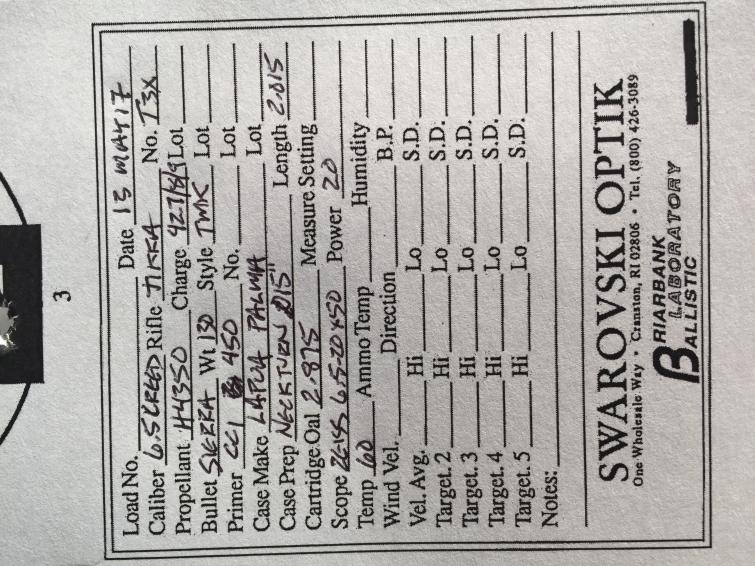 3
Load No. Date 13 MAY 17
Caliber 6.5 CREED Rifle TIKKA No. T3X
Propellant H4350 Charge 42.7/8/9 Lot
Bullet SIERRA Wt 130 Style TMK Lot
Primer CCI 450 No. Lot
Case Make LAPUA PALMA Lot
Case Prep NECK TURN .015" Length 2.015
Cartridge Oal 2.875 Measure Setting
Scope ZEISS 6.5-20x50 Power 20
Temp 60 Ammo Temp Humidity
Wind Vel. Direction B.P.
Vel. Avg. Hi Lo S.D.
Target. 2 Hi Lo S.D.
Target. 3 Hi Lo S.D.
Target. 4 Hi Lo S.D.
Target. 5 Hi Lo S.D.
Notes:
SWAROVSKI OPTIK
One Wholesale Way • Cranston, RI 02806 • Tel. (800) 426-3089
BRIARBANK
LABORATORY
BALLISTIC